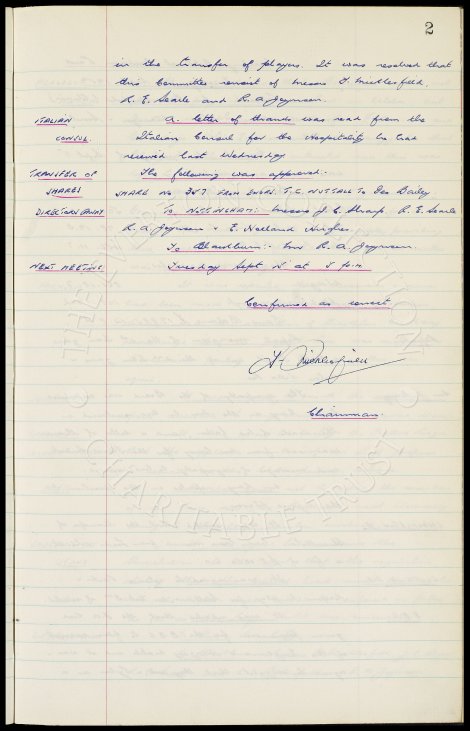 2
in the transfer of players. It was resolved that
this Committee consist of Messrs T. Micklesfield.
R. E. Searle and R. A Joynson.
ITALIAN A letter of thanks was read from the
CONSUL. Italian Consul for the Hospitality he had
received last Wednesday
TRANSFER OF The following was approved.
SHARES SHARE No 357 FROM EXORS. T.C. NUTTALL To Geo Bailey
DIRECTORS AWAY To NOTTINGHAM:- Messrs J. C. Sharp. R. E. Searle
R. A Joynson & E. Holland Hughes
To Blackburn:- Mr R. A. Joynson.
NEXT MEETING. Tuesday Sept at 5 p.m.
Confirmed as correct
Micklesfield
Chairman.
THE EVERTON COLLECTION
CHARITABLE TRUST